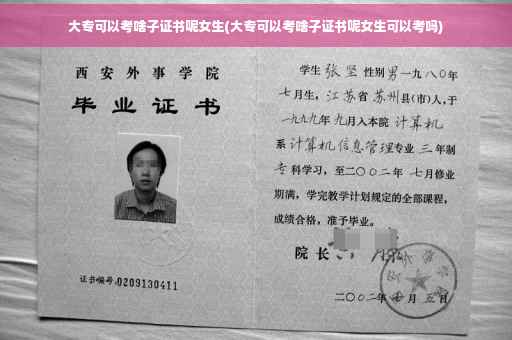 大专可以考啥子证书呢女生(大专可以考啥子证书呢女生可以考吗)
西安外事学院
毕业证书
证书编号:0209130411
学生 张坚 性别 男 一九八〇年
七月生, 江苏省 苏州县(市)人, 于
一九九九年 九月入本院 计算机
系 计算机信息管理专业 三 年制
专 科学习, 至二〇〇二年 七月修业
期满, 学完教学计划规定的全部课程,
成绩合格, 准予毕业。
院长
二〇〇二年 月 五日